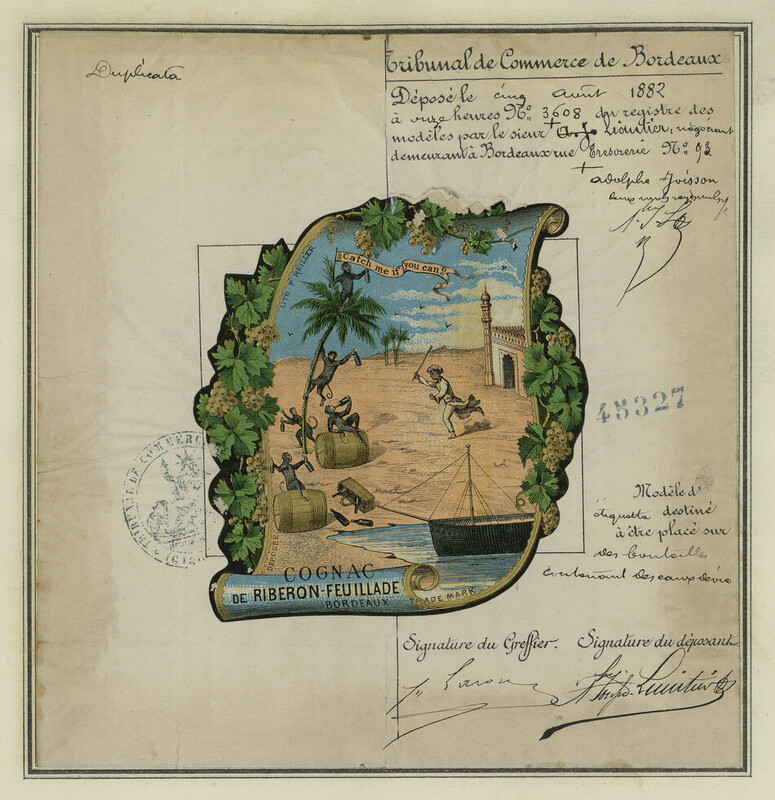 Duplicata
Tribunal de Commerce de Bordeaux
Déposé le cinq Août 1882
à onze heures No. 3608 du registre des
modèles par le sieur Lioutier, négociant
demeurant à Bordeaux rue Tresorerie No. 93
adolphe Joisson
Catch me if you can!!
LITH. F. REILLER
48327
TRIBUNAL DE COMMERCE
Modèle d'
étiquette destiné
à être placé sur
des bouteilles
contenant des eaux de vie
DEPOSÉE
COGNAC
DE RIBERON-FEUILLADE
BORDEAUX
TRADE MARK
Signature du Greffier. Signature du déposant